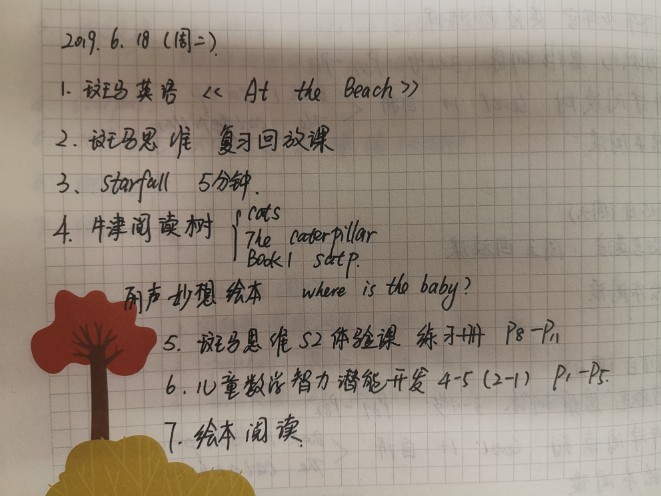 2019. 6. 18 (周二)
1. 斑马英语 《 At the Beach 》
2. 斑马思维 复习回放课
3. starfall 5分钟.
4. 牛津阅读树 { cats
The caterpillar
Book1 satp.
丽声妙想绘本 where is the baby?
5. 斑马思维 S2 体验课 练习册 P8-P11
6. 儿童数学智力潜能开发 4-5 (2-1) P1-P5.
7. 绘本阅读.